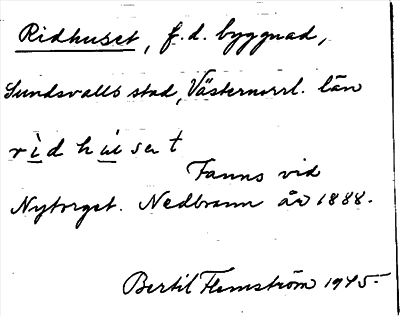 Ridhuset, f.d. byggnad,
Sundsvalls stad, Västernorrl. län
rìd hu̇set
Fanns vid
Nytorget. Nedbrann år 1888.
Bertil Flemström 1945